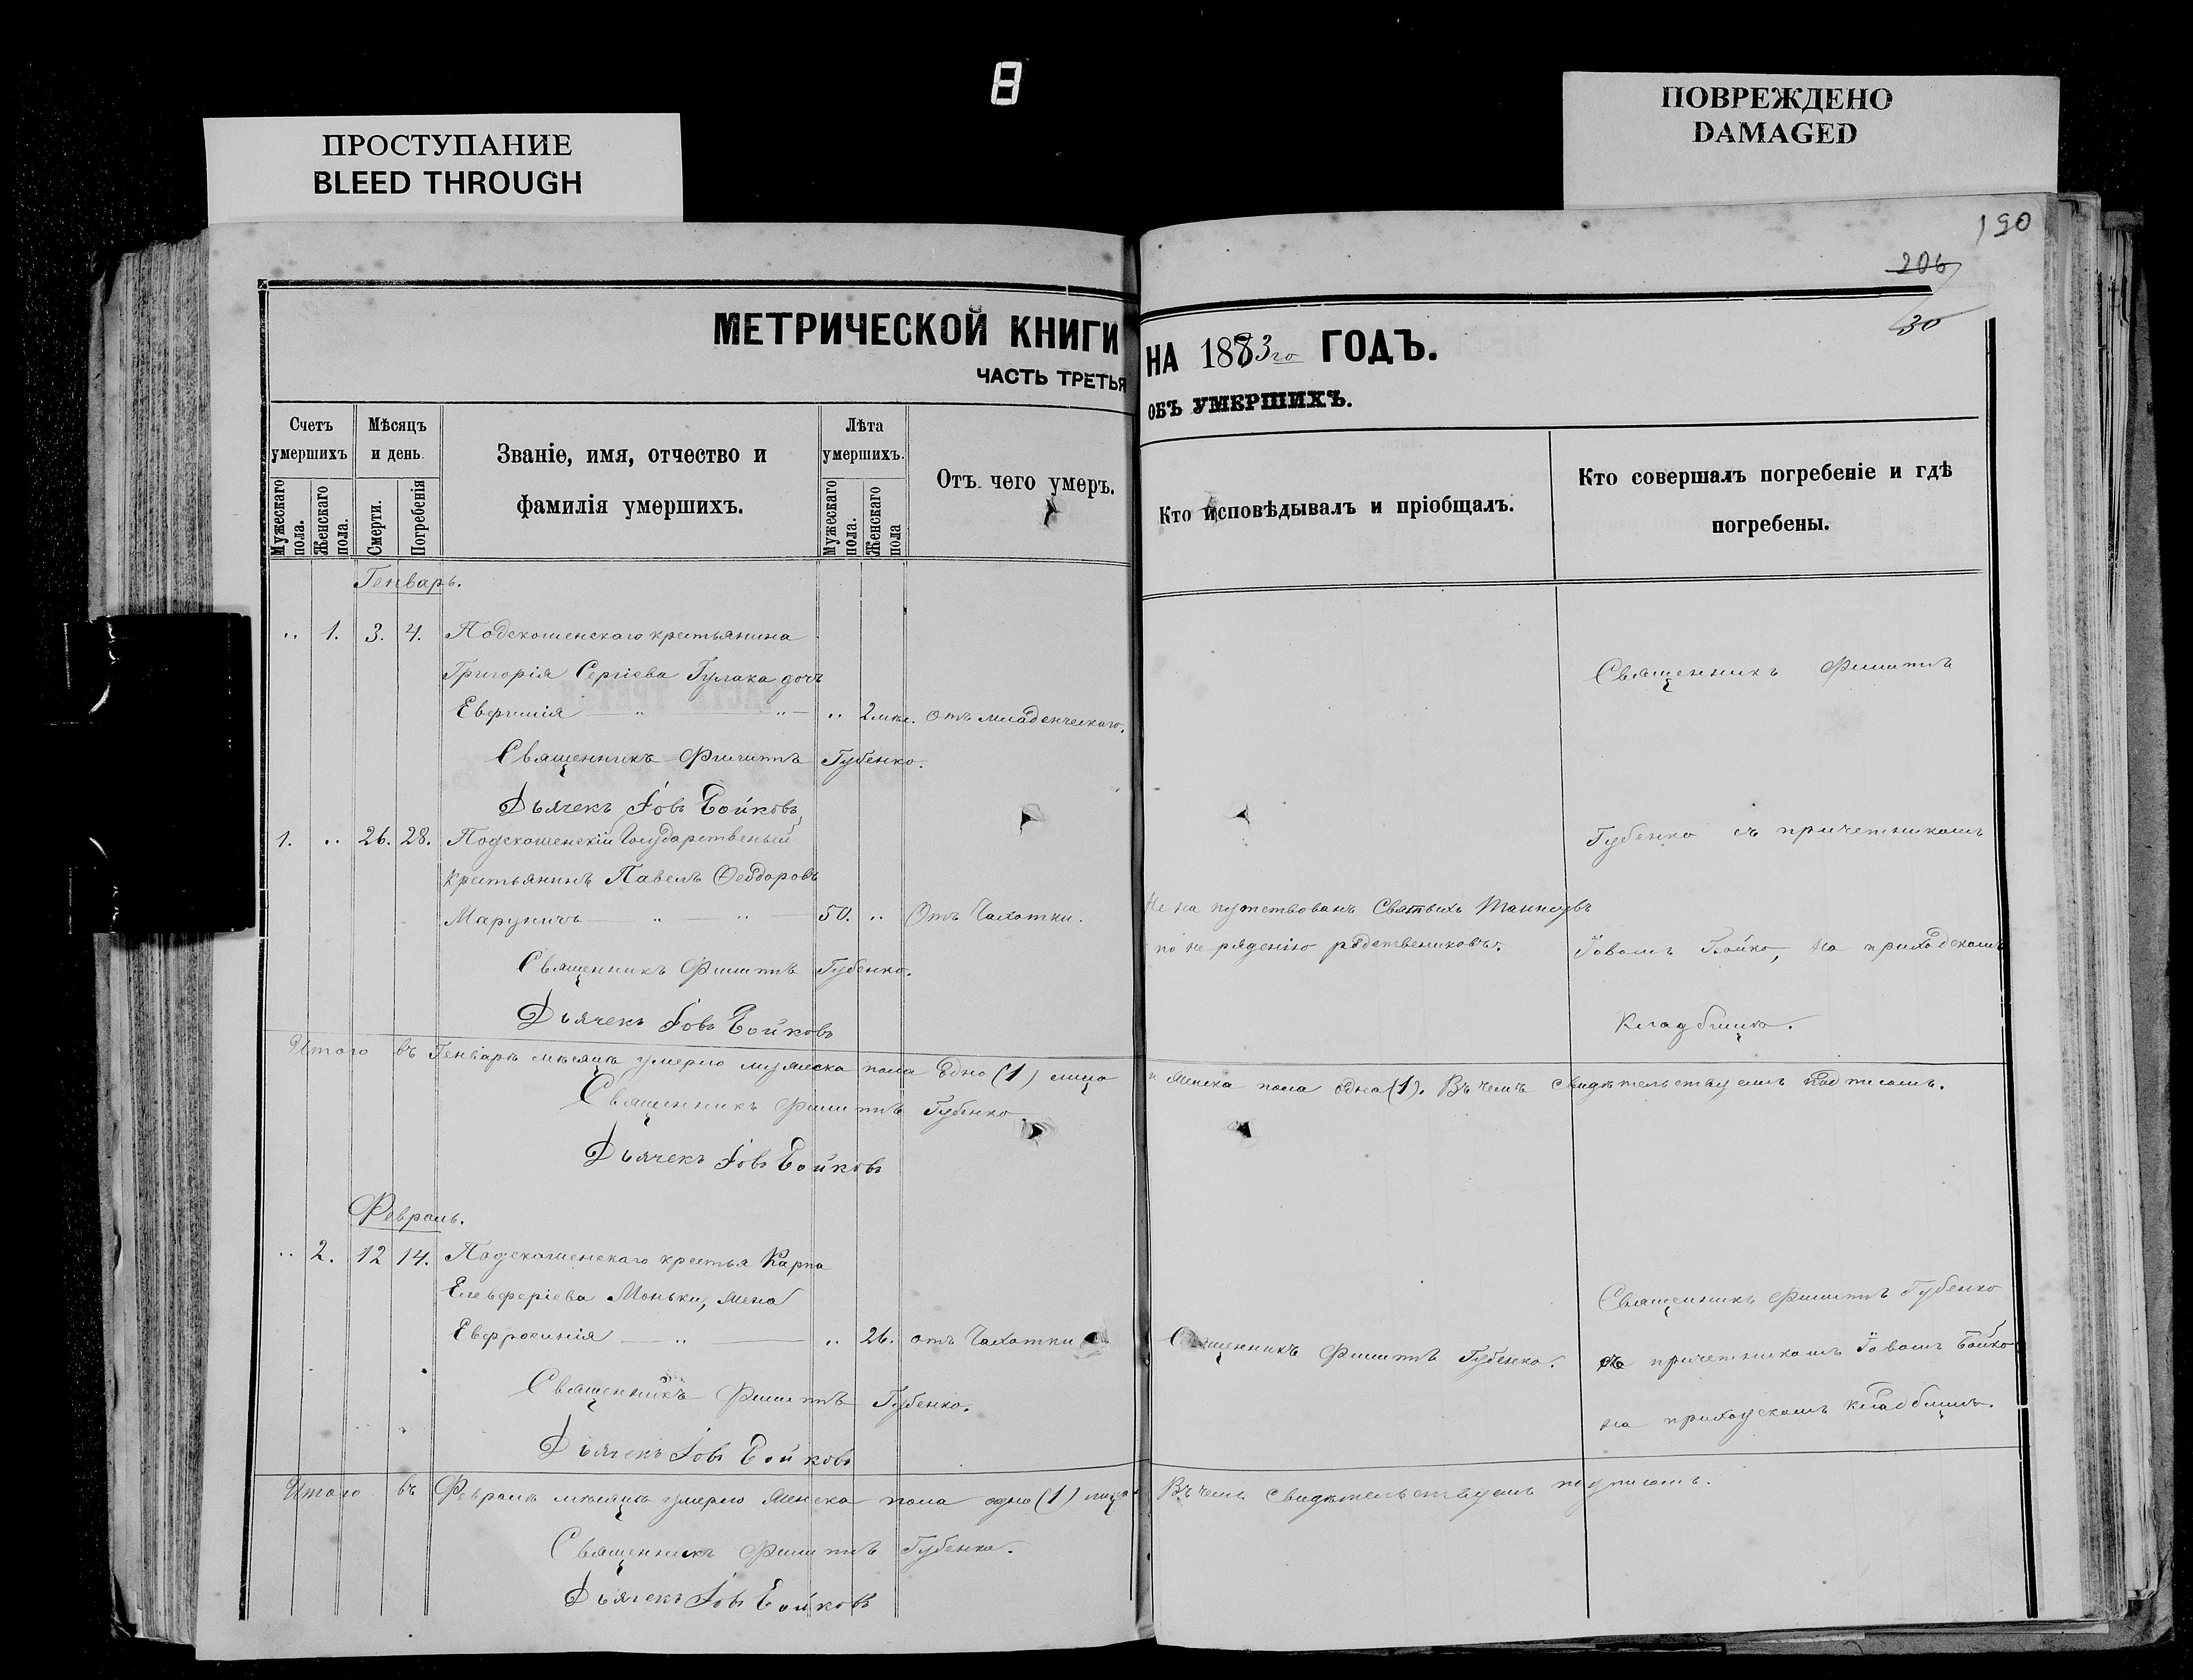 8
ПРОСТУПАНИЕ
BLEED THROUGH
ПОВРЕЖДЕНО
DAMAGED
190
206
30
МЕТРИЧЕСКОЙ КНИГИ
ЧАСТЬ ТРЕТЬЯ
НА 1883го ГОДЪ.
ОБЪ УМЕРШИХЪ.
Счетъ умершихъ
Мужескаго пола.
Женскаго пола.
Мѣсяцъ и день.
Смерти.
Погребенія
Званіе, имя, отчество и
фамилія умершихъ.
Лѣта умершихъ.
Мужескаго пола.
Женскаго пола
Отъ чего умеръ.
Кто исповѣдывалъ и пріобщалъ.
Кто совершалъ погребеніе и гдѣ
погребены.
Генварь.
.. 1. 3. 4. Подскошенскаго крестьянина
Григорія Сергіева Гулака дочь
Евфимія — " — " — .. 2 мѣс. отъ младенческаго.
Священникъ Филиппъ Губенко.
Дьячекъ Іовъ Бойковъ
1. .. 26. 28. Подскошенскій Государственый
крестьянинъ Павелъ Феодоровъ
Маруничъ — " " — 50. .. Отъ Чахотки.
Священникъ Филиппъ Губенко.
Дьячекъ Іовъ Бойковъ
Не на путствованъ Святыхъ Таинъ
по не родственниковъ.
Священникъ Филиппъ
Губенко съ причетникомъ
Іовомъ Бойко, на приходскомъ
Кладбищѣ.
Итого въ Генварѣ мѣсяцѣ умерло мужеска пола одно (1) лицо и женска пола одна (1). Въ чемъ свидѣтельствуемъ подписомъ.
Священникъ Филиппъ Губенко.
Дьячекъ Іовъ Бойковъ
Февраль.
.. 2. 12 14. Подскошенскаго крестья Карпа
Елевферіева Моньки, жена
Евфросинія — " — .. 26. отъ Чахотки
Священникъ Филиппъ Губенко.
Дьячекъ Іовъ Бойковъ
Священникъ Филиппъ Губенко.
Священникъ Филиппъ Губенко
съ причетникомъ Іовомъ Бойко
на приходскомъ кладбищѣ.
Итого въ Февралѣ мѣсяцѣ умерло женска пола одно (1) лицо Въ чемъ свидѣтельствуемъ подписомъ.
Священникъ Филиппъ Губенко.
Дьячекъ Іовъ Бойковъ